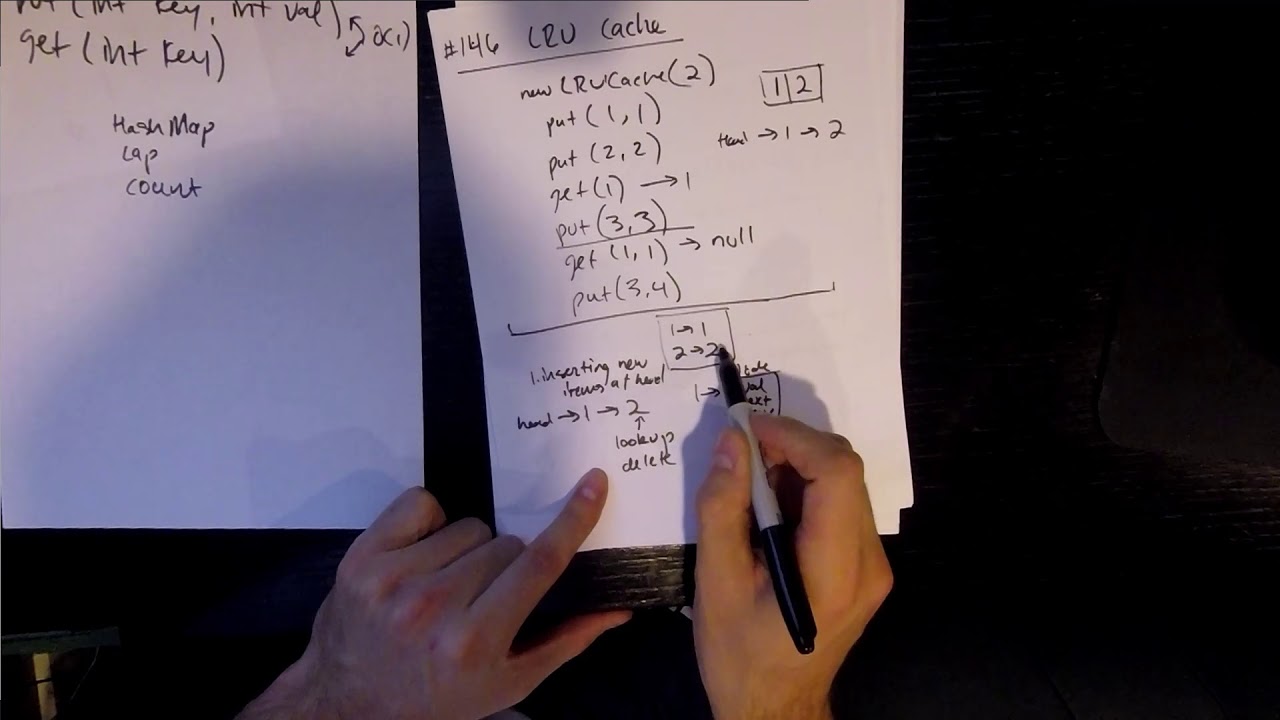 put (int key, int val)
get (int key)
O(1)
HashMap
cap
count
#146 LRU Cache
new LRUCache(2)
put (1, 1)
put (2, 2)
get (1) → 1
put (3, 3)
get (1, 1) → null
put (3, 4)
1|2
Head → 1 → 2
1 → 1
2 → 2
1. inserting new
items at head
head → 1 → 2
↑
lookup
delete
1 →
val